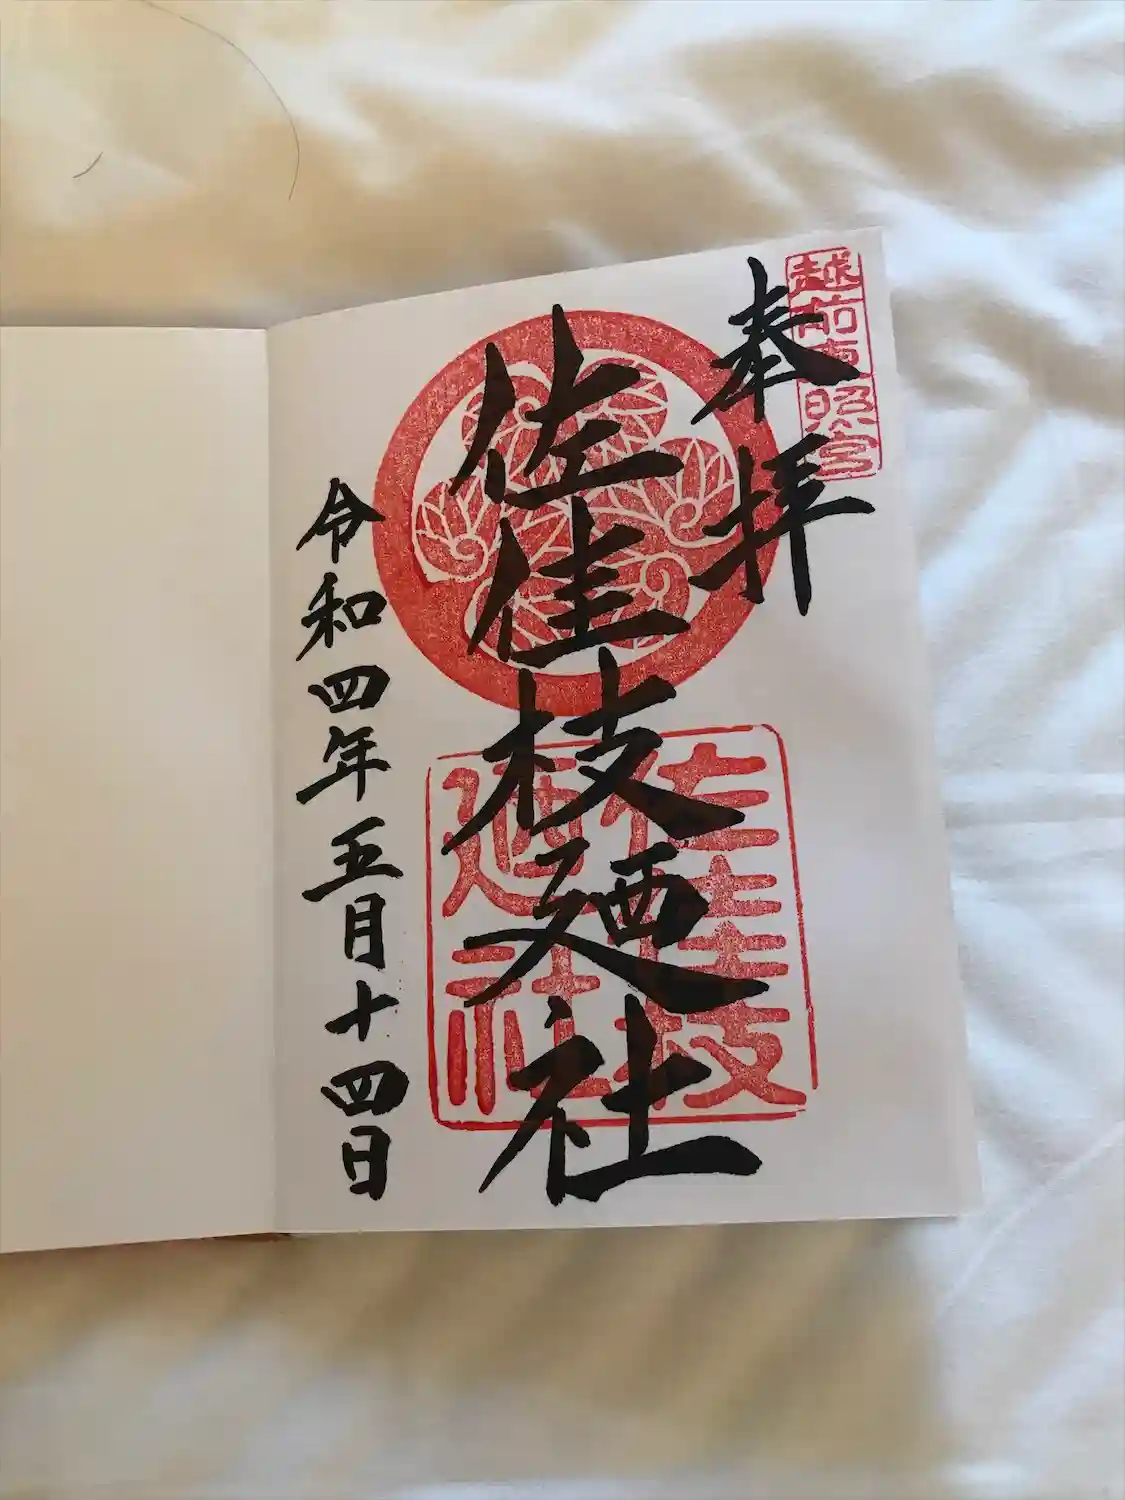 越前東照宮
奉拝
佐佳枝廼社
佐佳枝
廼社
令和四年五月十四日